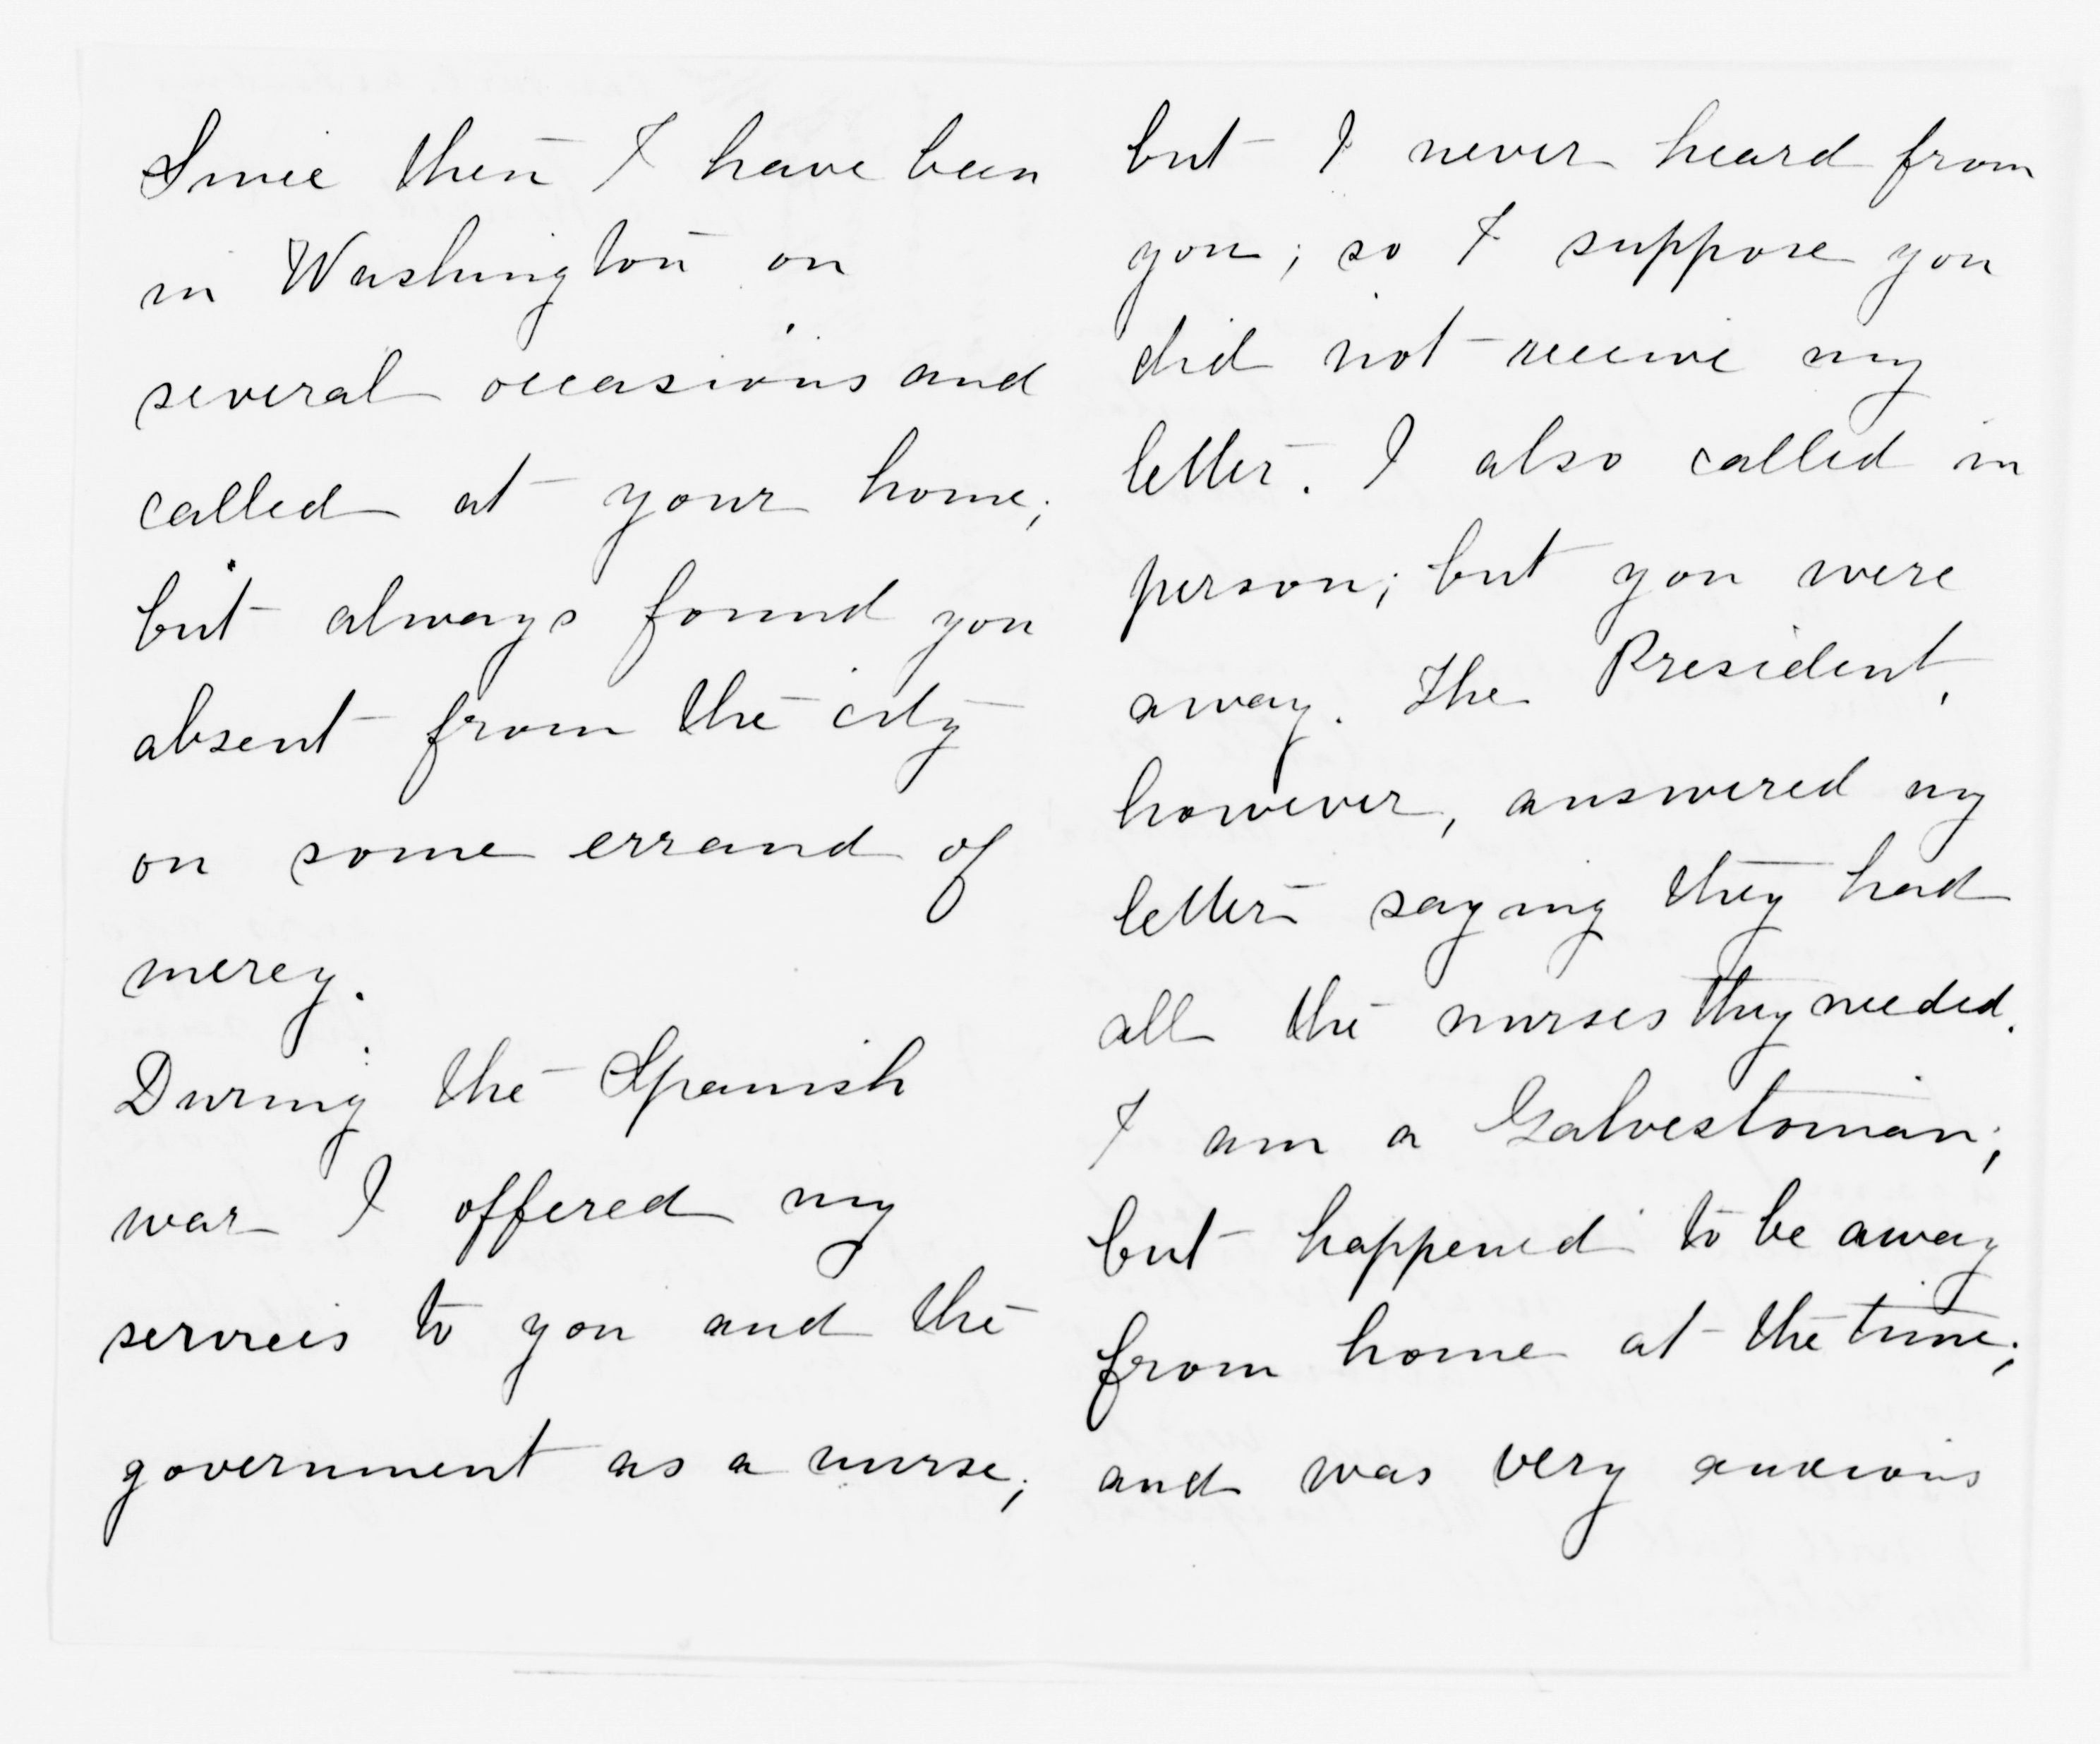 Since then I have been
in Washington on
several occasions and
called at your home;
but always found you
absent from the city
on some errand of
mercy.
During the Spanish
war I offered my
services to you and the
government as a nurse;
but I never heard from
you; so I suppose you
did not receive my
letter. I also called in
person; but you were
away. The President,
however, answered my
letter saying they had
all the nurses they needed.
I am a Galvestonian;
but happened to be away
from home at the time;
and was very anxious